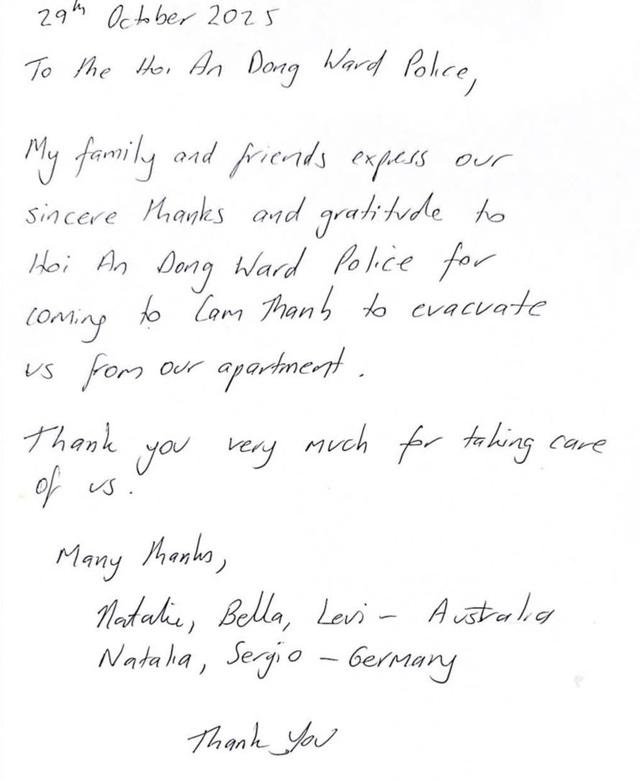 29th October 2025
To the Hoi An Dong Ward Police,
My family and friends express our
sincere thanks and gratitude to
Hoi An Dong Ward Police for
coming to Cam Thanh to evacuate
us from our apartment.
Thank you very much for taking care
of us.
Many thanks,
Natalie, Bella, Levi - Australia
Natalia, Sergio - Germany
Thank you